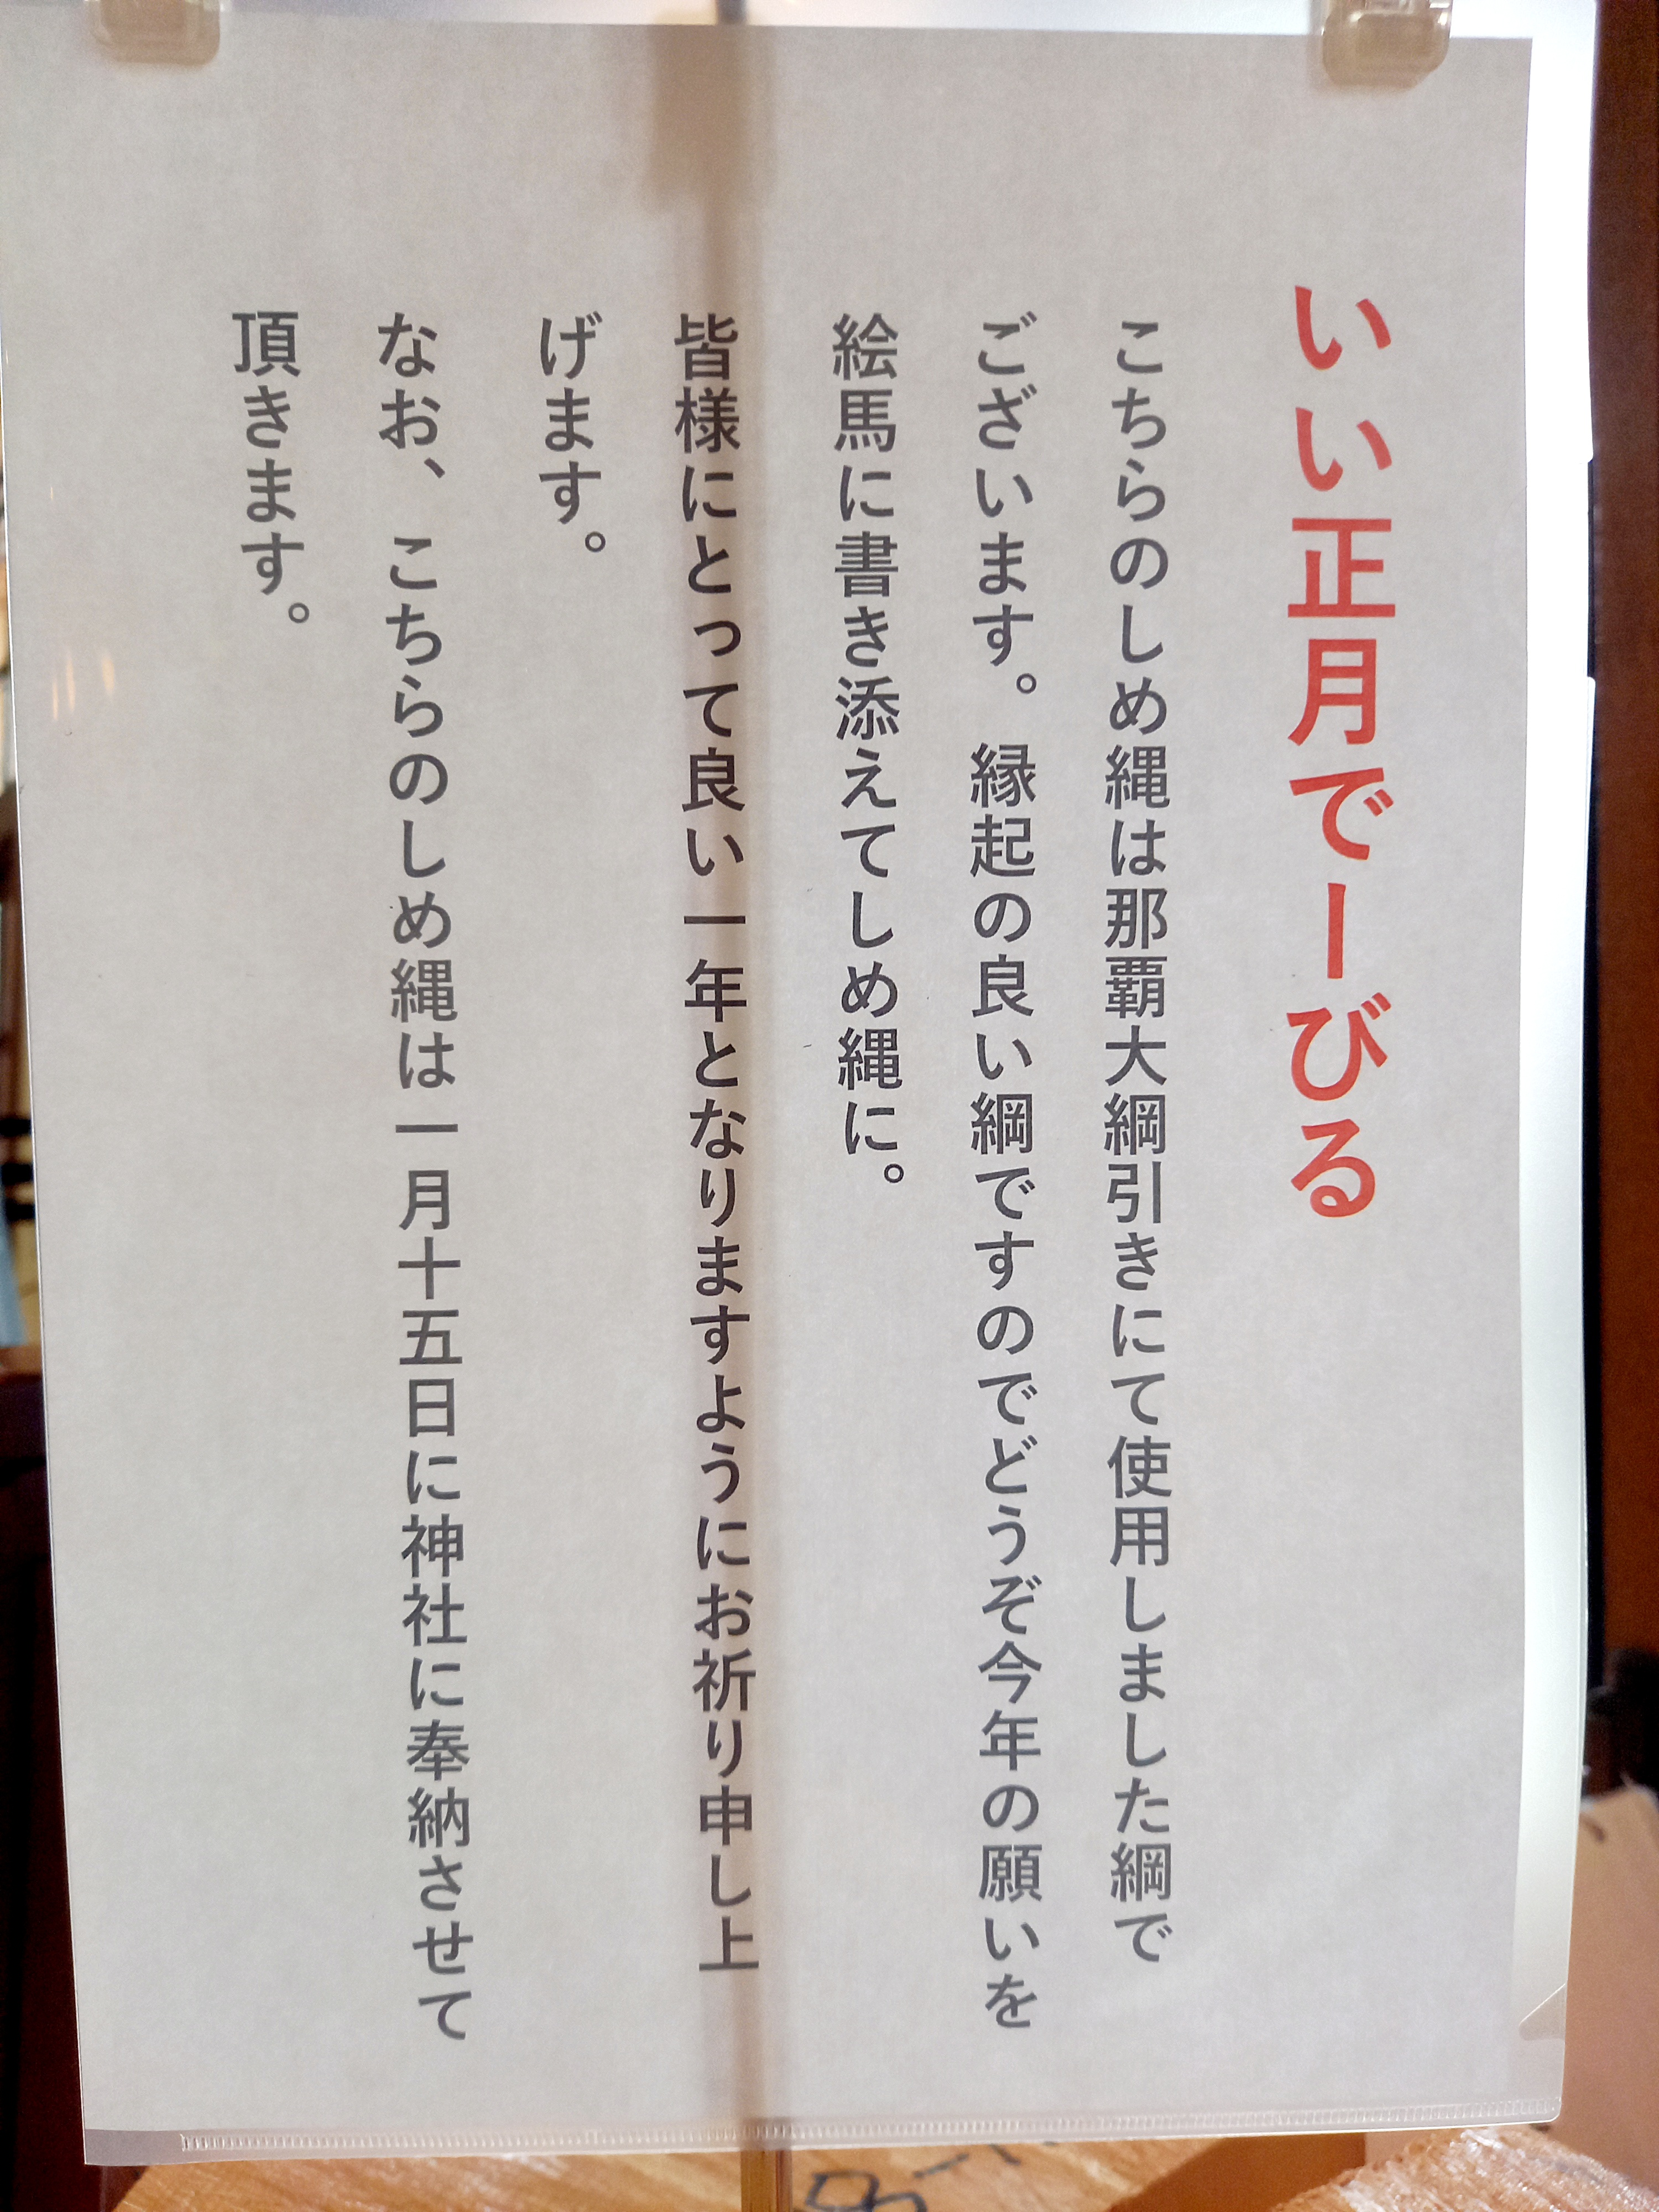 いい正月でーびる
こちらのしめ縄は那覇大綱引きにて使用しました綱で
ございます。縁起の良い綱ですのでどうぞ今年の願いを
絵馬に書き添えてしめ縄に。
皆様にとって良い一年となりますようにお祈り申し上
げます。
なお、こちらのしめ縄は一月十五日に神社に奉納させて
頂きます。